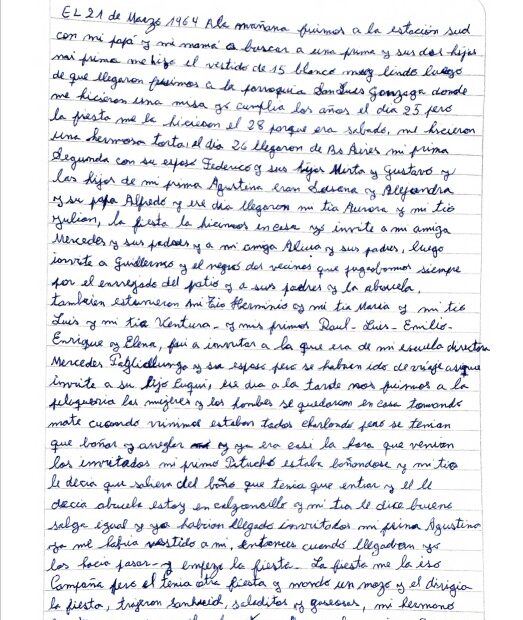 EL 21 de Marzo 1964 A la mañana fuimos a la estación sud
con mi papá y mi mamá a buscar a una prima y sus dos hijos
mi prima me hizo el vestido de 15 blanco muy lindo luego
de que llegaron fuimos a la parroquia San Luis Gonzaga donde
me hicieron una misa yo cumplia los años el dia 25 pero
la fiesta me la hicieron el 28 porque era sabado, me hicieron
una hermosa torta, el dia 26 llegaron de Bs Aires mi prima
Segunda con su esposo Federico y sus hijos Mirta y Gustavo y
las hijas de mi prima Agustina eran y Alejandra
y su papa Alfredo y ese dia llegaron mi tia Aurora y mi tio
Julian, la fiesta la hicimos en casa yo invite a mi amiga
Mercedes y sus padres y a mi amiga Alicia y sus padres, luego
invite a Guillermo y el negro dos vecinos que jugabamos siempre
por el enrejado del patio y a sus padres y la abuela,
tambien estuvieron mi tio Herminio y mi tia Maria y mi tio
Luis y mi tia Ventura - y mis primos Raul - Luis - Emilio -
Enrique y Elena, fui a invitar a la que era de mi escuela directora
Mercedes y su esposo pero se habian ido de viaje asi que
invite a su hijo Luqui, ese dia a la tarde nos fuimos a la
peluqueria las mujeres y los hombres se quedaron en casa tomando
mate cuando vinimos estaban todos charlando pero se tenian
que bañar y arreglar y ya era casi la hora que venian
los invitados mi primo Pitucho estaba bañandose y mi tia
le decia que saliera del baño que tenia que entrar y el le
decia abuela estoy en calzoncillo y mi tia le dice bueno
salga igual y ya habian llegado invitados mi prima Agustina
ya me habia vestido a mi, entonces cuando llegaban yo
los hacia pasar - y empezo la fiesta - La fiesta me la iso
Campaña pero el tenia otra fiesta y mando un mozo y el dirigia
la fiesta, trajeron saladitos y gaseosas, mi hermano